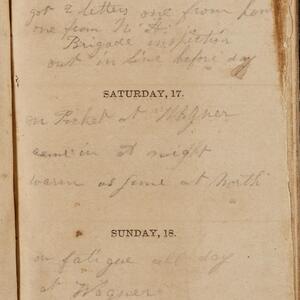 got 2 letters one from hom
one from N. H.
Brigade inspection
out in line before day
SATURDAY, 17.
on Picket at Wagner
came in at night
warm as June at North
SUNDAY, 18.
on fatigue all day
at Wagner